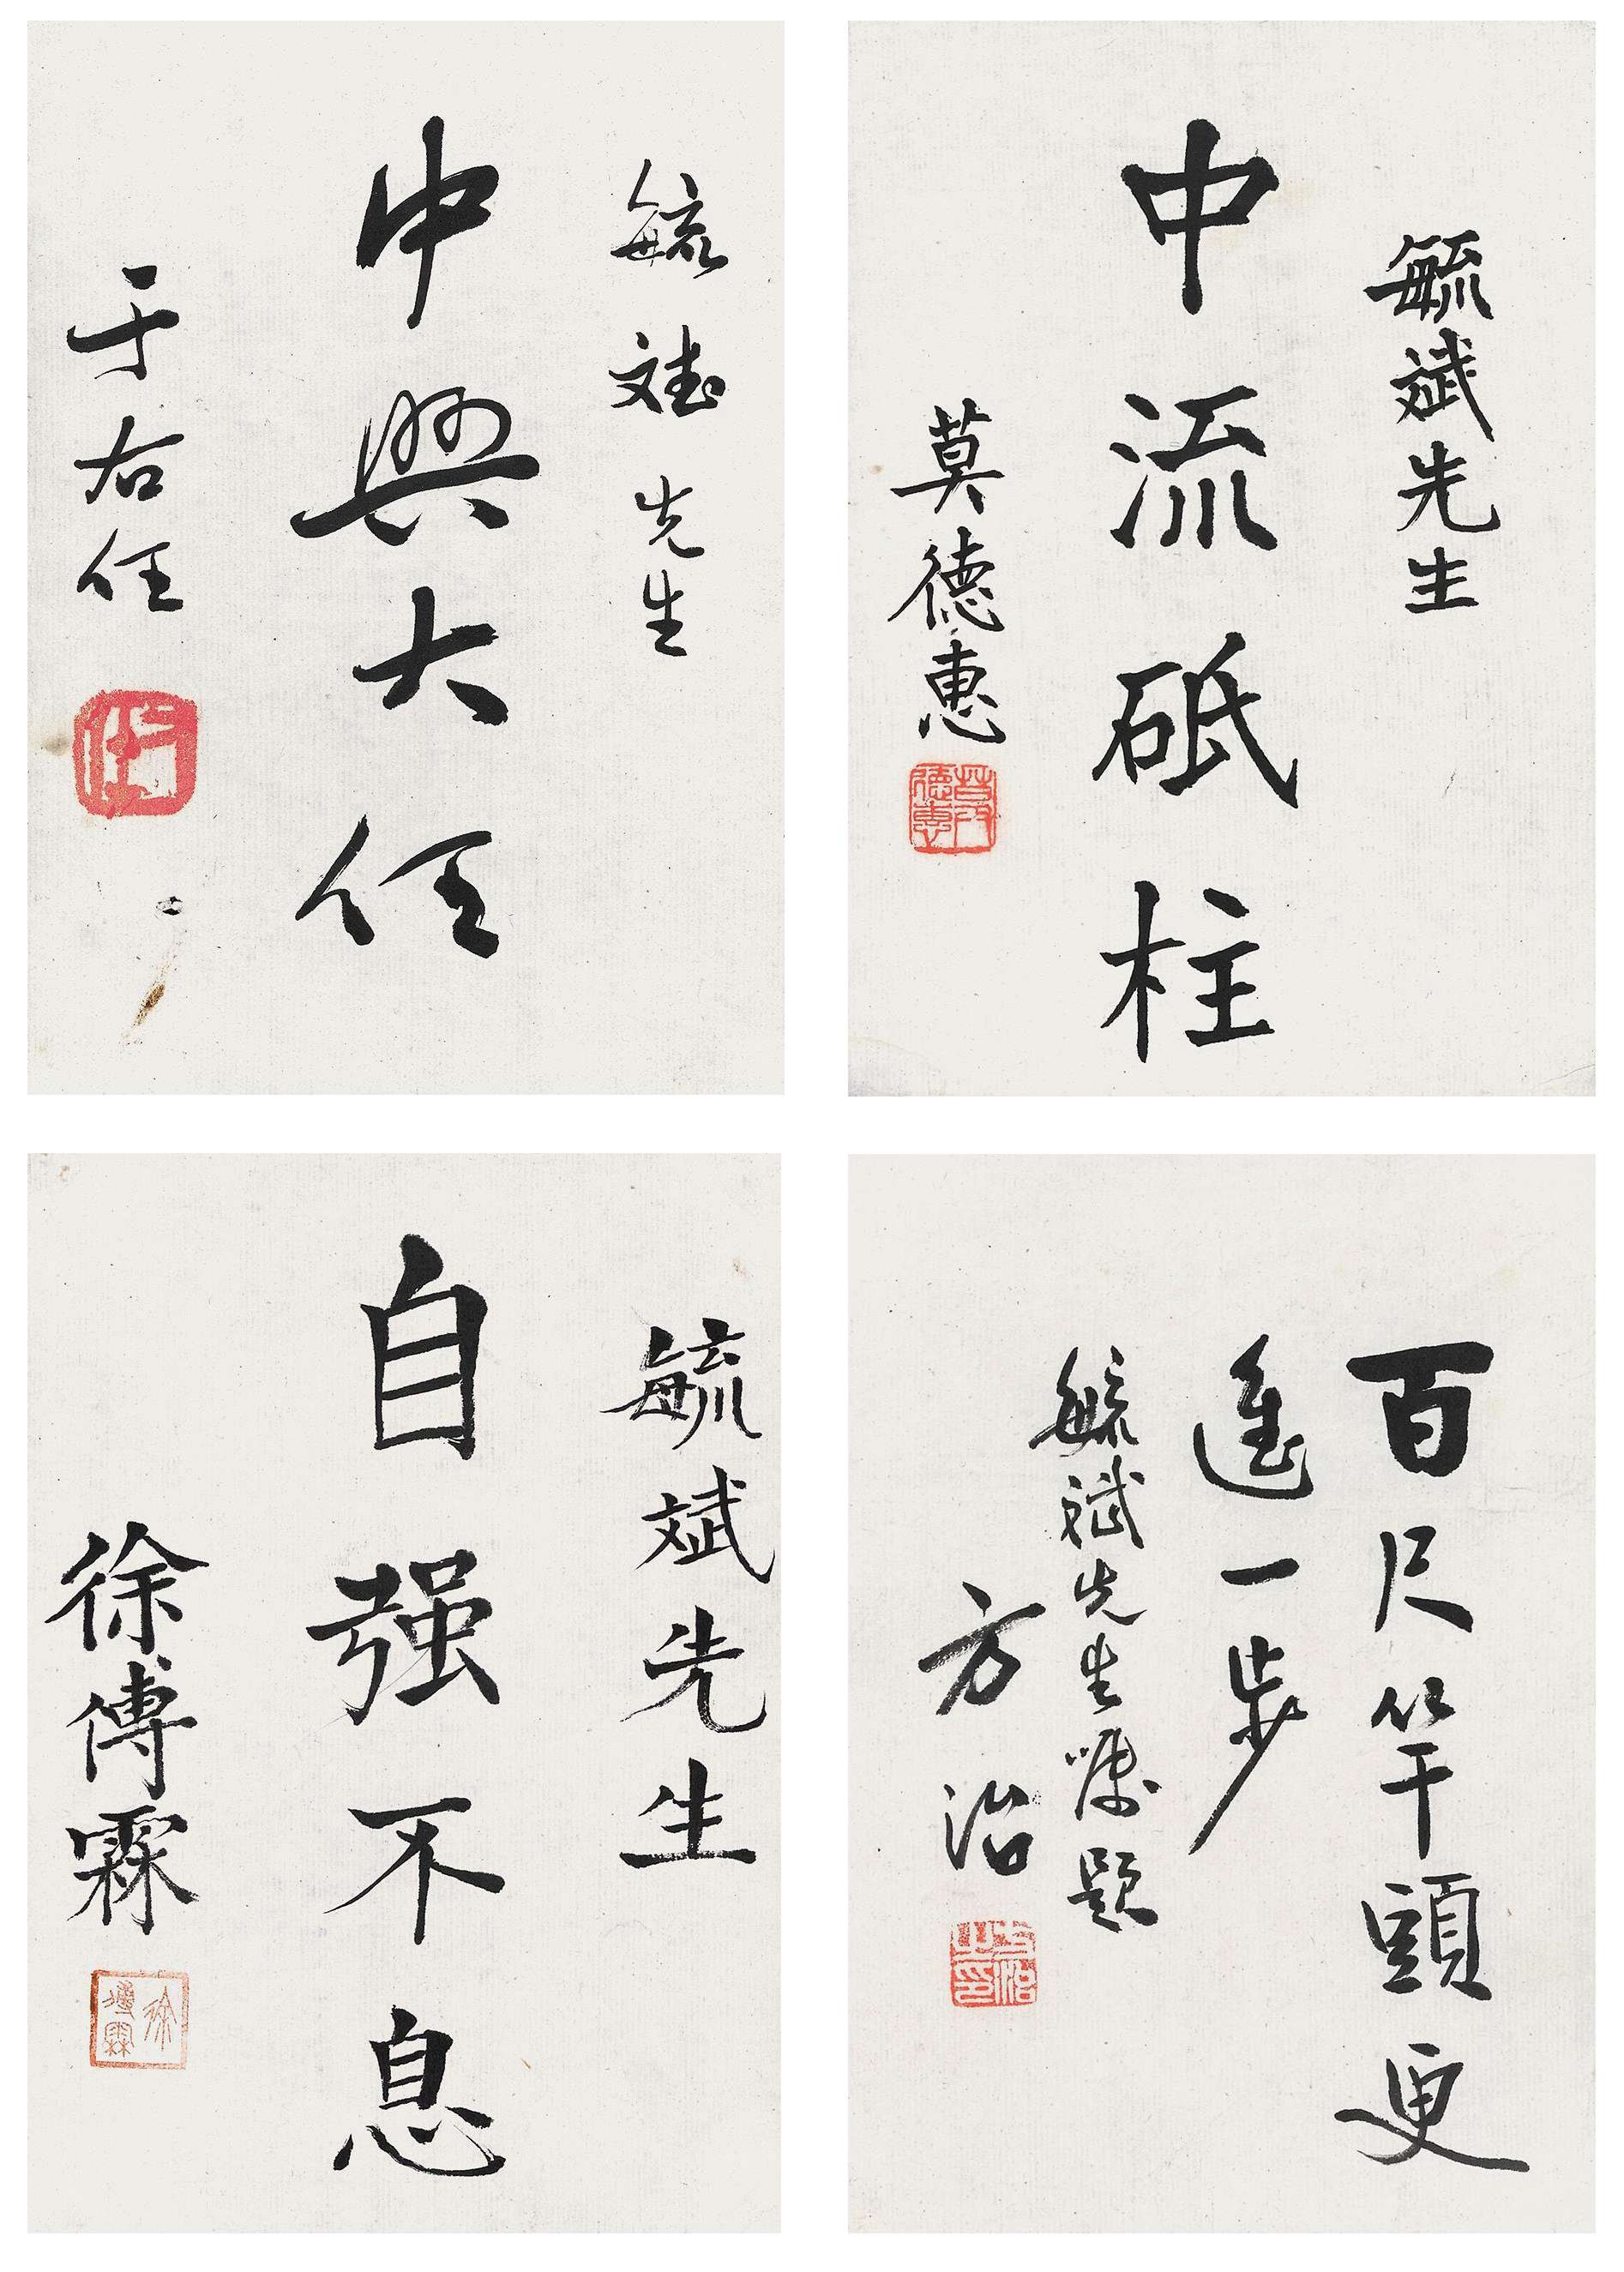 毓斌先生
中流砥柱
莫德惠
莫德惠
毓斌先生
中興大任
于右任
右任
百尺竿頭更
進一步
毓斌先生囑題
方治
方治之印
毓斌先生
自强不息
徐傅霖
徐傅霖